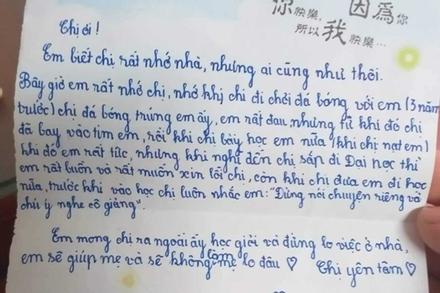 你快樂,
因為你
所以我快樂...
Chị ơi!
Em biết chị rất nhớ nhà, nhưng ai cũng như thôi.
Bây giờ em rất nhớ chị, nhớ khi chị đi chơi đá bóng với em (3 năm
trước) chị đá bóng trúng em ấy, em rất đau, nhưng từ khi đó chị
đã bay vào tim em, rồi khi chị bảy học em nữa (khi chị nạt em)
khi đó em rất tức, nhưng khi nghĩ đến chị sắp đi Đại học thì
em rất buồn và rất muốn xin lỗi chị, còn khi chị đưa em đi học
nữa, trước khi vào học chị luôn nhắc em: "Đừng nói chuyện riêng và
chú ý nghe cô giảng".
Em mong chị ra ngoài ấy học giỏi và đừng lo việc ở nhà,
em sẽ giúp mẹ và sẽ không làm mẹ lo đâu ♡ Chị yên tâm ♡